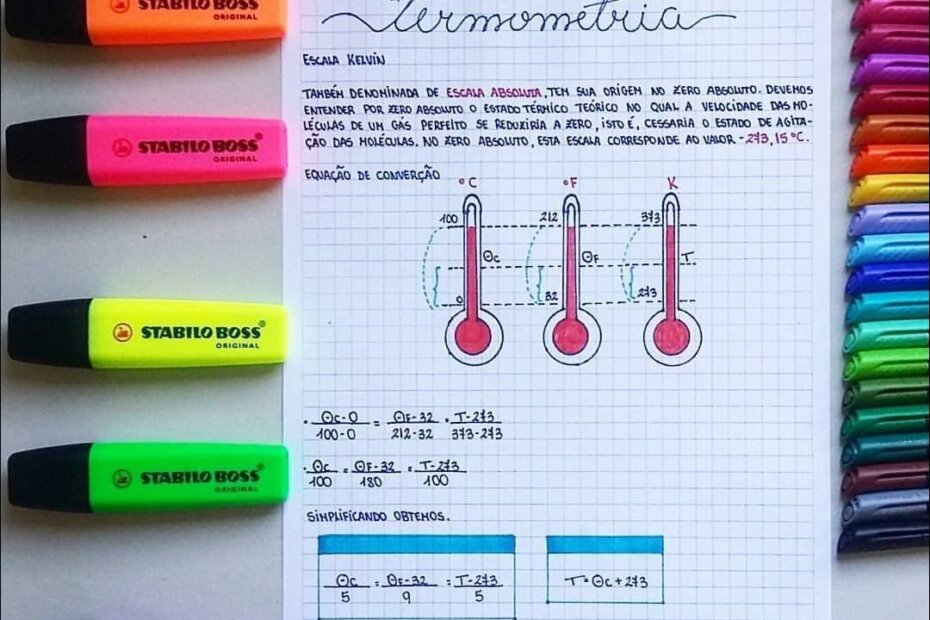 STABILO BOSS
ORIGINAL
STABILO BOSS®
ORIGINAL
STABILO BOSS®
ORIGINAL
STABILO BOSS®
ORIGINAL
Termometria
ESCALA KELVIN
TAMBÉM DENOMINADA DE ESCALA ABSOLUTA, TEM SUA ORIGEM NO ZERO ABSOLUTO. DEVEMOS
ENTENDER POR ZERO ABSOLUTO O ESTADO TÉRMICO TEÓRICO NO QUAL A VELOCIDADE DAS MO-
LÉCULAS DE UM GÁS PERFEITO SE REDUZIRIA A ZERO, ISTO É, CESSARIA O ESTADO DE AGITA-
ÇÃO DAS MOLÉCULAS. NO ZERO ABSOLUTO, ESTA ESCALA CORRESPONDE AO VALOR -273,15 °C.
EQUAÇÃO DE CONVERÇÃO
°C °F K
100 212 373
Θc ΘF T
0 32 273
· Θc-0 = ΘF-32 · T-273
100-0 212-32 373-273
· Θc = ΘF-32 = T-273
100 180 100
SIMPLIFICANDO OBTEMOS.
Θc = ΘF-32 = T-273
5 9 5
T=Θc+273